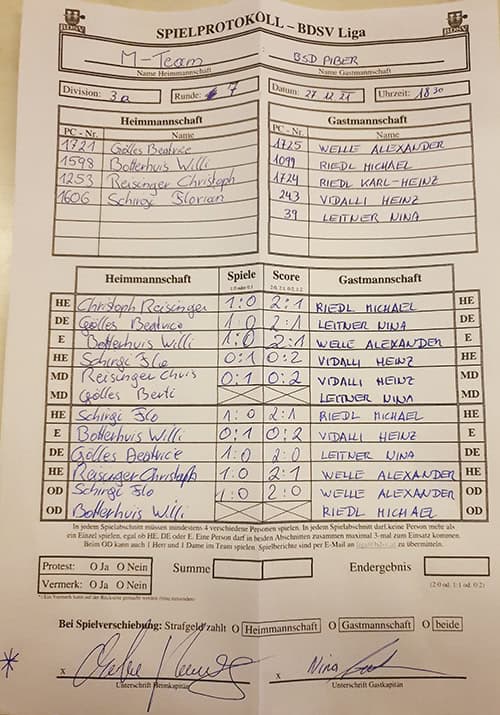 SPIELPROTOKOLL – BDSV Liga
BDSV BDSV
M-Team BSD PIBER
Name Heimmannschaft Name Gastmannschaft
Division: 3a Runde: 7 Datum: 27.12.21 Uhrzeit: 18 30
Heimmannschaft Gastmannschaft
PC - Nr. Name PC - Nr. Name
1721 Gölles Beatrice 1725 WELLE ALEXANDER
1598 Botterhuis Willi 1099 RIEDL MICHAEL
1253 Reisinger Christoph 1724 RIEDL KARL-HEINZ
1606 Schirgi Florian 243 VIDALLI HEINZ
39 LEITNER NINA
Heimmannschaft Spiele Score Gastmannschaft
1:0 oder 0:1 2:0, 2:1, 0:2, 1:2
HE Christoph Reisinger 1:0 2:1 RIEDL MICHAEL HE
DE Gölles Beatrice 1:0 2:1 LEITNER NINA DE
E Botterhuis Willi 1:0 2:1 WELLE ALEXANDER E
HE Schirgi Flo 0:1 0:2 VIDALLI HEINZ HE
MD Reisinger Chris 0:1 0:2 VIDALLI HEINZ MD
MD Gölles Berti LEITNER NINA MD
HE Schirgi Flo 1:0 2:1 RIEDL MICHAEL HE
E Botterhuis Willi 0:1 0:2 VIDALLI HEINZ E
DE Gölles Beatrice 1:0 2:0 LEITNER NINA DE
HE Reisinger Christoph 1:0 2:1 WELLE ALEXANDER HE
OD Schirgi Flo 1:0 2:0 WELLE ALEXANDER OD
OD Botterhuis Willi RIEDL MICHAEL OD
In jedem Spielabschnitt müssen mindestens 4 verschiedene Personen spielen. In jedem Spielabschnitt darf keine Person mehr als
ein Einzel spielen, egal ob HE, DE oder E. Eine Person darf in beiden Abschnitten zusammen maximal 3-mal zum Einsatz kommen.
Beim OD kann auch 1 Herr und 1 Dame im Team spielen. Spielberichte sind per E-Mail an zu übermitteln.
Protest: O Ja O Nein Summe Endergebnis
Vermerk: O Ja O Nein (2:0 od. 1:1 od. 0:2)
*) Ein Vermerk kann auf der Rückseite gemacht werden
Bei Spielverschiebung: Strafgeld zahlt O Heimmannschaft O Gastmannschaft O beide
x x Nina
Unterschrift Heimkapitän Unterschrift Gastkapitän